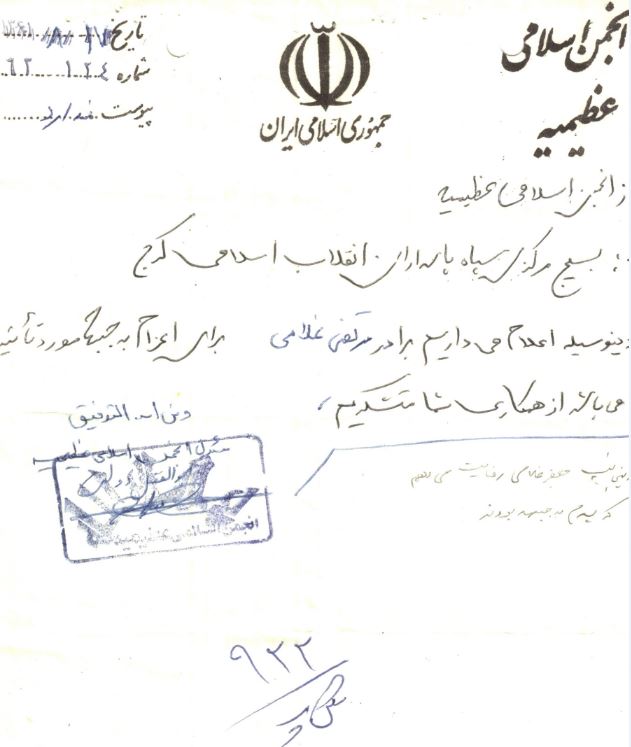 انجمن اسلامی
عظیمیه
جمهوری اسلامی ایران
تاریخ
شماره ۱۲۴
پیوست ندارد
از انجمن اسلامی عظیمیه
به بسیج مرکزی سپاه پاسداران انقلاب اسلامی کرج
بدینوسیله اعلام می داریم برادر مرتضی غلامی برای اعزام به جبهه مورد تأئید
می باشد از همکاری شما متشکریم
و من الله التوفیق
مسئول انجمن اسلامی عظیمیه
انجمن اسلامی عظیمیه
غلامی رضایت می دهم
که پسرم به جبهه برود
۹۳۲